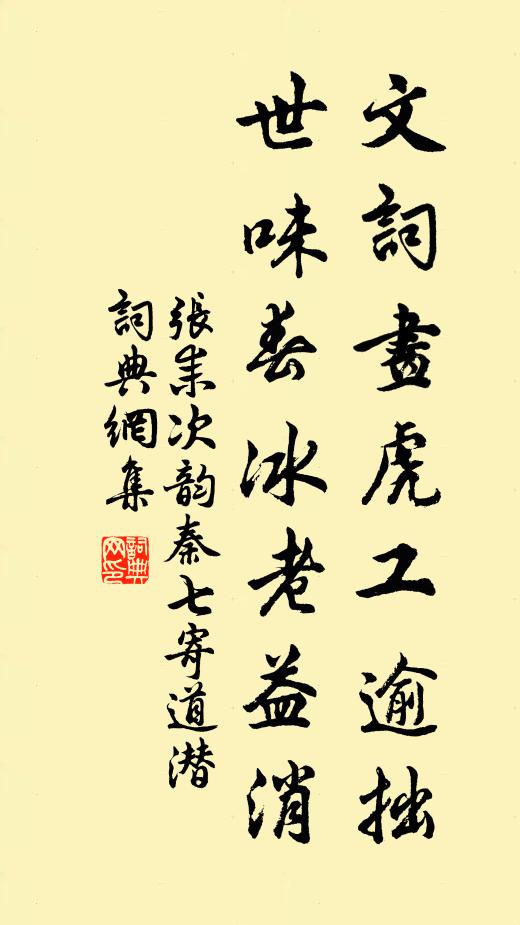 文詞畫虎工逾拙
世味春冰老益消
張耒次韵秦七寄道潜
詞典網集
詞典网印